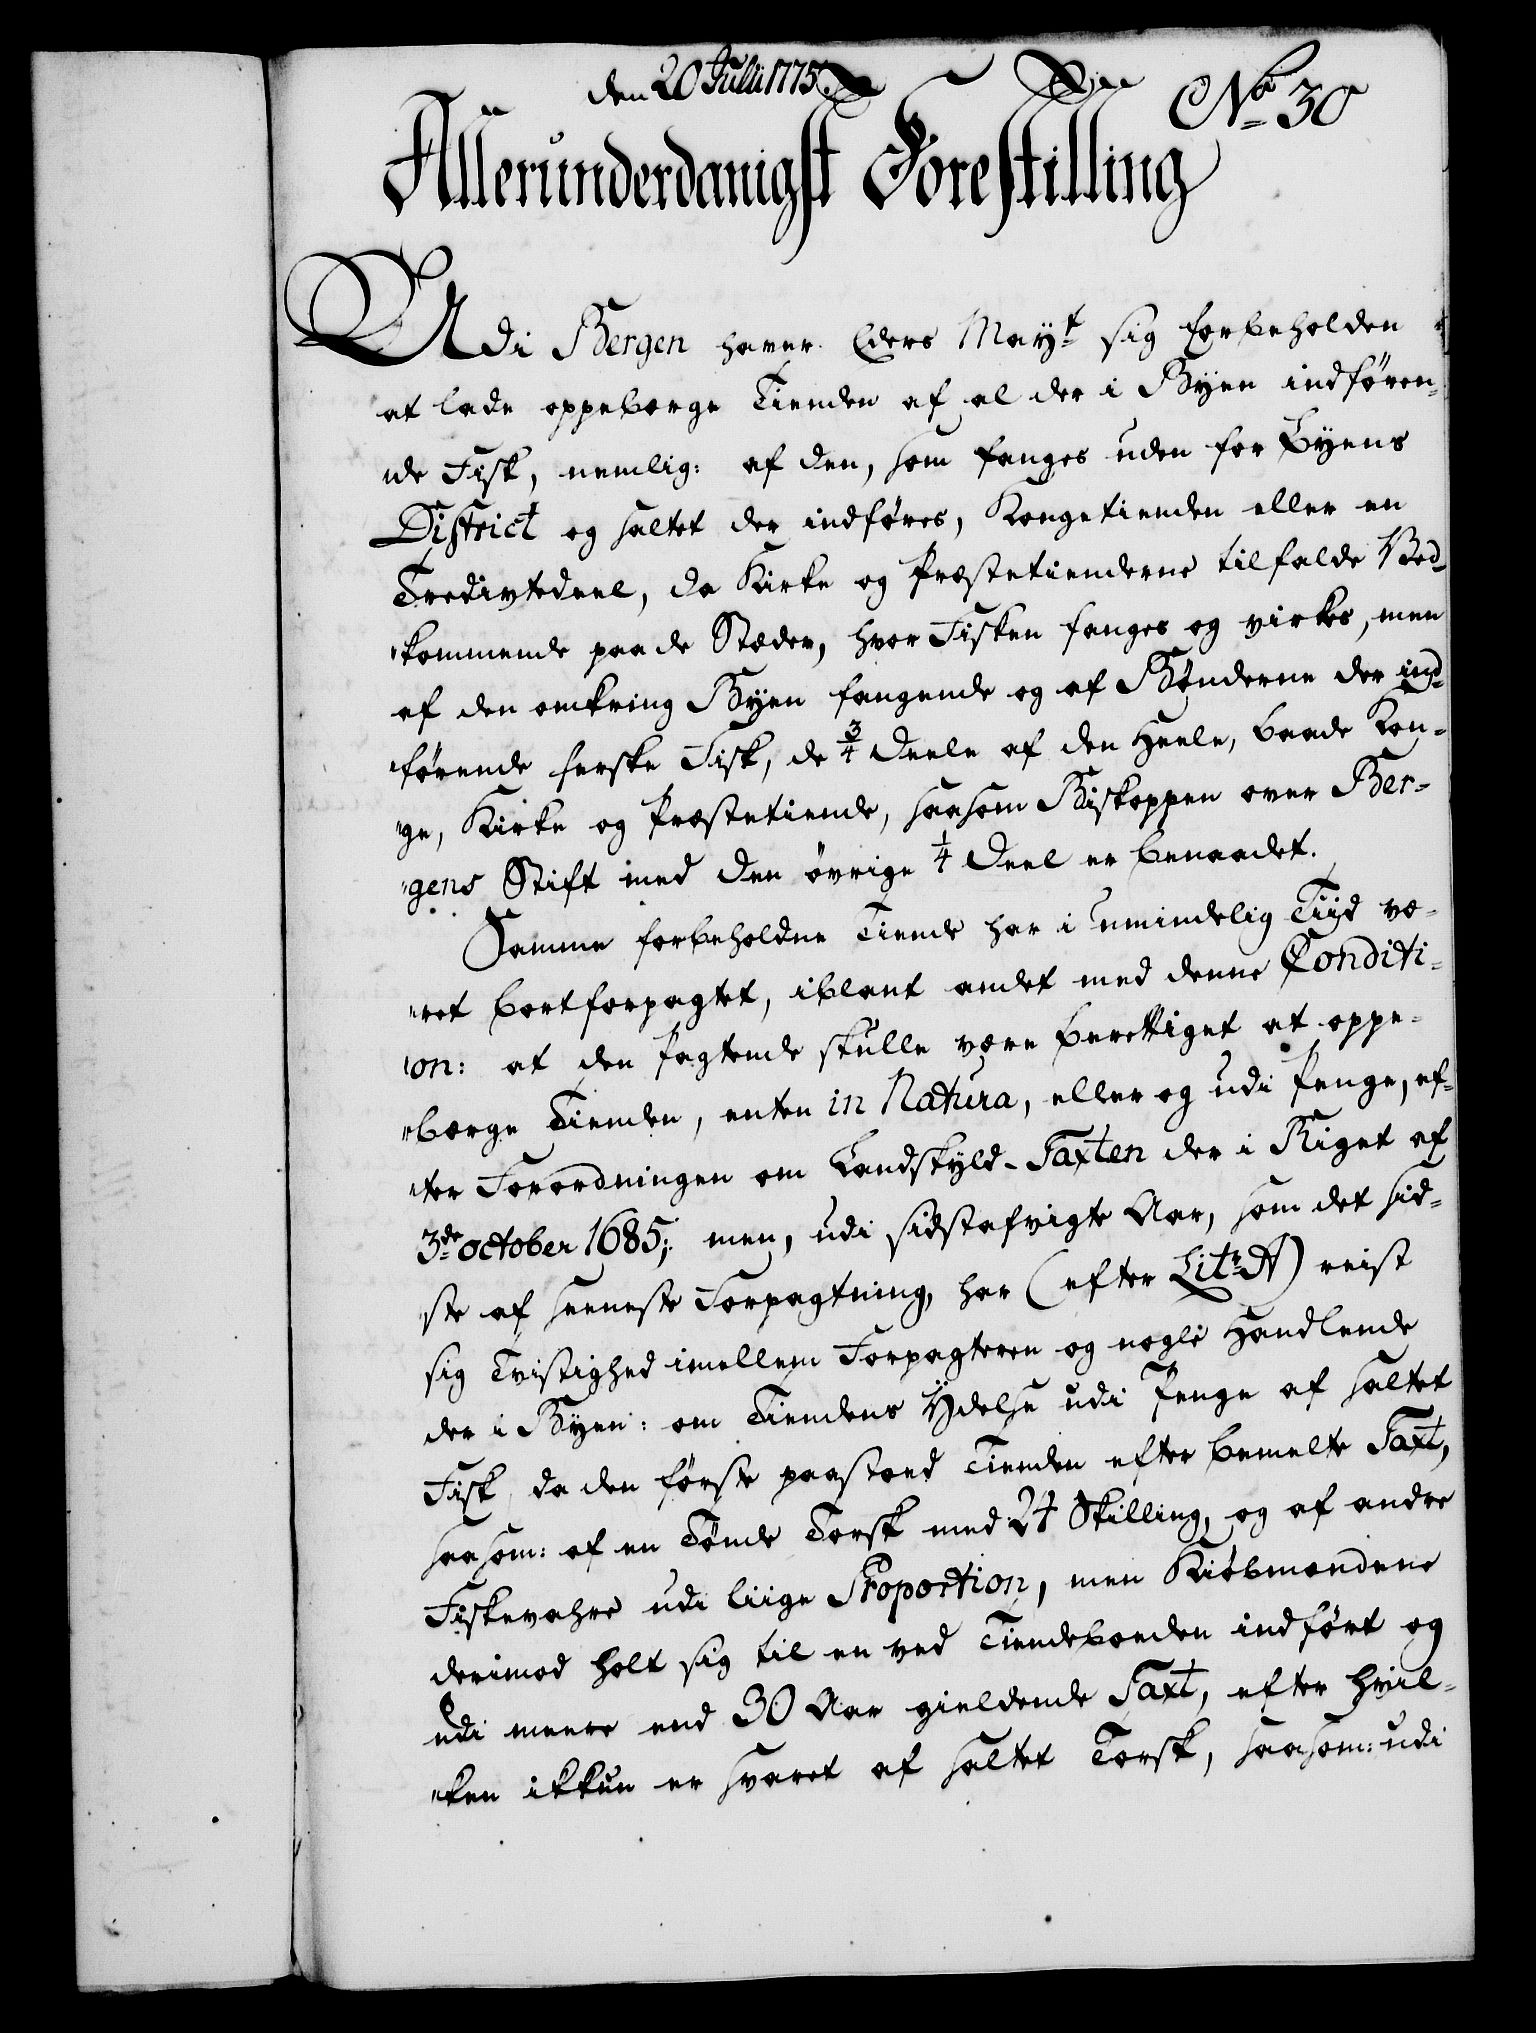 den 20 Julii 1775.
No 30
Allerunderdanigst Forestilling
Udi Bergen haver Eders Mayt sig forbeholden
at lade oppebærge Tienden af al der i Byen indføren-
de Fisk, nemlig: af den, som fanges uden for Byens
District og saltet der indføres, Kongetienden eller en
Tredivtedeel, da Kirke og Præstetienderne tilfalde Ved-
kommende paa de Stæder, hvor Fisken fanges og virkes, men
af den omkring Byen fangende og af Bønderne der ind-
førende ferske Fisk, de 3/4 Deele af den Heele, baade Kon-
ge, Kirke og Præstetiende, saasom Biskoppen over Ber-
gens Stift med den øvrige 1/4 Deel er benaadet.
Samme forbeholdne Tiende har i umindelig Tiid væ-
ret bortforpagtet, iblant andet med denne Conditi-
on: at den Pagtende skulle være berettiget at oppe-
bærge Tienden, enten in Natura, eller og udi Penge, ef-
ter Forordningen om Landskyld-Taxten der i Riget af
3de october 1685; men, udi sidstafvigte Aar, som det sid-
ste af seeneste Forpagtning, har (efter Litr. A) reist
sig Tvistighed imellem Forpagteren og nogle Handlende
der i Byen: om Tiendens Ydelse udi Penge af saltet
Fisk, da den første paastoed Tienden efter bemelte Taxt,
saasom: af en Tønde Torsk med 24 Skilling, og af andre
Fiskevahre udi liige Proportion, men Kiøbmændene
derimod holt sig til en ved Tiendeboeden indført og
udi meere end 30 Aar gieldende Taxt, efter hvil-
ken ikkun er svaret af saltet Torsk, saasom: udi